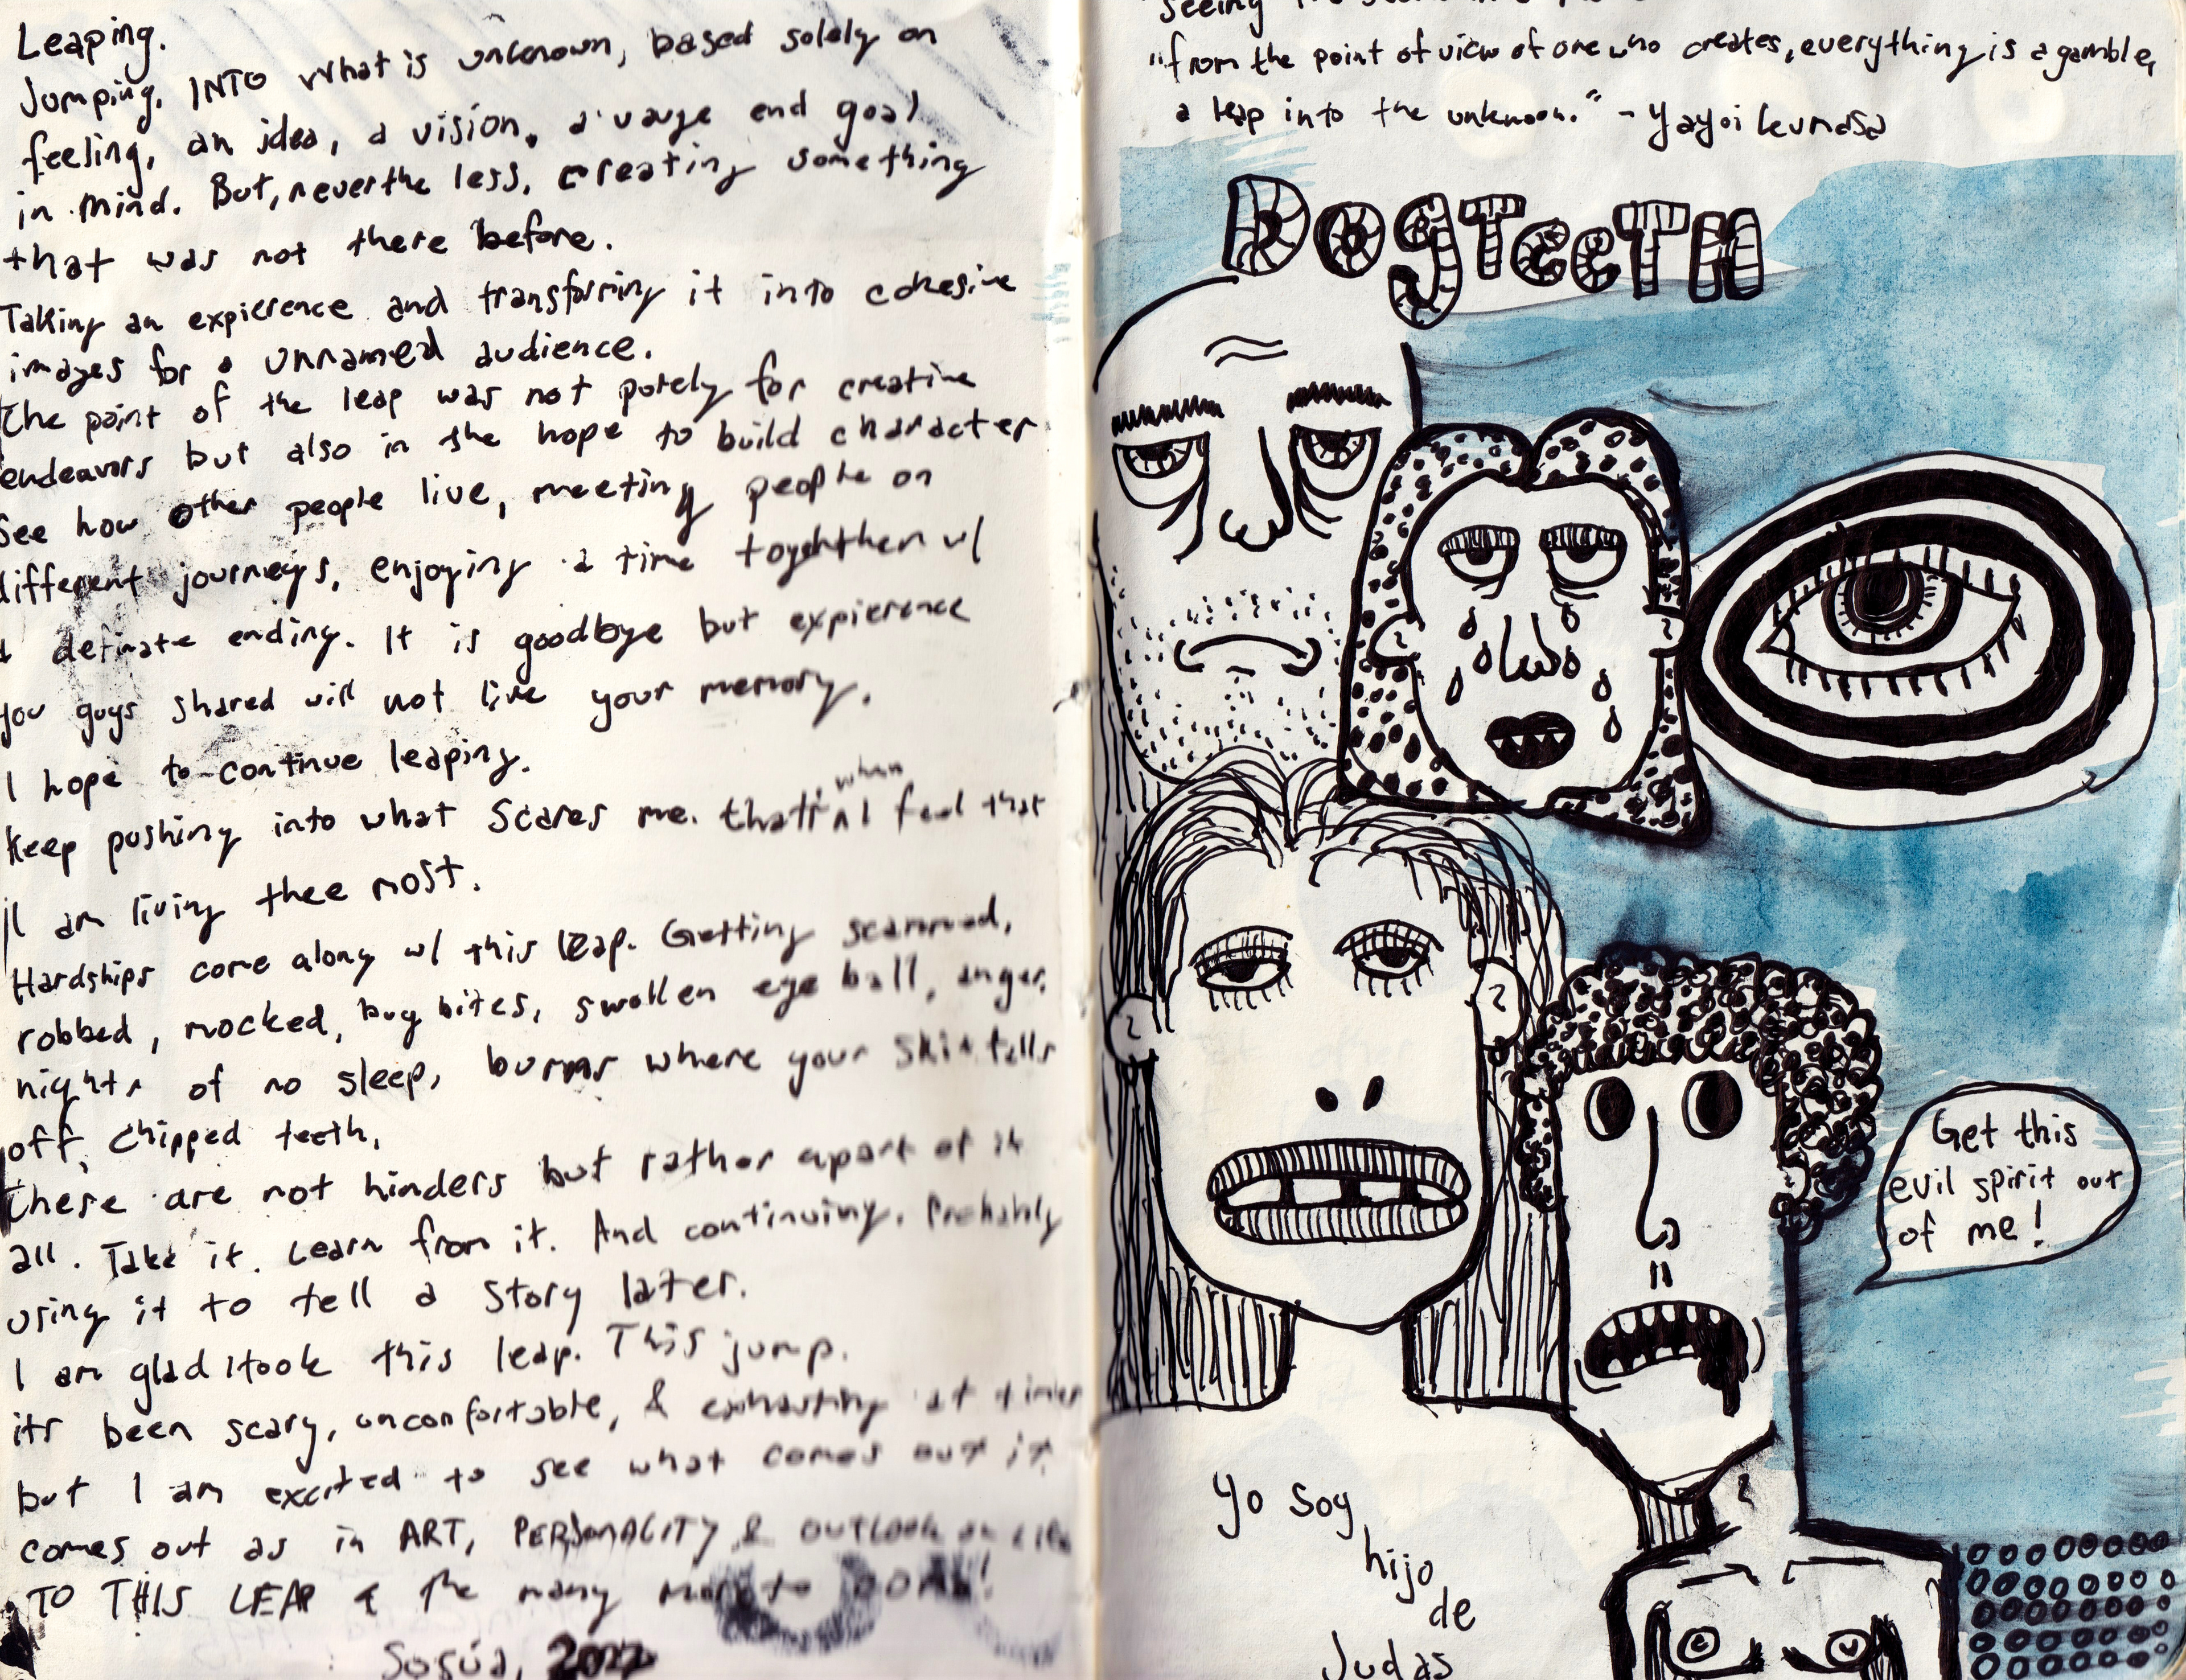 Leaping.
Jumping. INTO what is unknown, based solely on
feeling, an idea, a vision, a vauge end goal
in mind. But, never the less, creating something
that was not there before.
Taking an expierence and transforming it into cohesive
images for a unnamed audience.
The point of the leap was not purely for creative
endeavors but also in the hope to build character
See how other people live, meeting people on
different journeys, enjoying a time togehther w/
definate ending. It is goodbye but expierence
you guys shared will not live your memory.
I hope to continue leaping.
Keep pushing into what scares me. that's when I feel that
I am living thee most.
Hardships come along w/ this leap. Getting scammed,
robbed, mocked, bug bites, swollen eye ball, anger,
nights of no sleep, burns where your skin falls
off, chipped teeth,
these are not hinders but rather apart of it
all. Take it. Learn from it. And continuing. Probably
using it to tell a story later.
I am glad I took this leap. This jump.
its been scary, unconfortable, & exhausting at times
but I am excited to see what comes out it
comes out as in ART, PERSONALITY & OUTLOOK on life
TO THIS LEAP & the many more to COME!
Sosúa, 2022
seeing
"from the point of view of one who creates, everything is a gamble,
a leap into the unknown." - Yayoi kumasa
DogTeeTH
Get this
evil spirit out
of me!
Yo soy
hijo
de
Judas